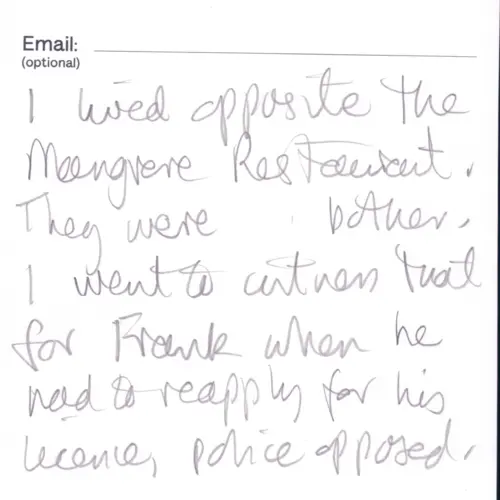 Email:
(optional)
I lived opposite the
Mangrove Restaurant.
They were bother.
I went to witness that
for Frank when he
had to reapply for his
licence, police opposed.